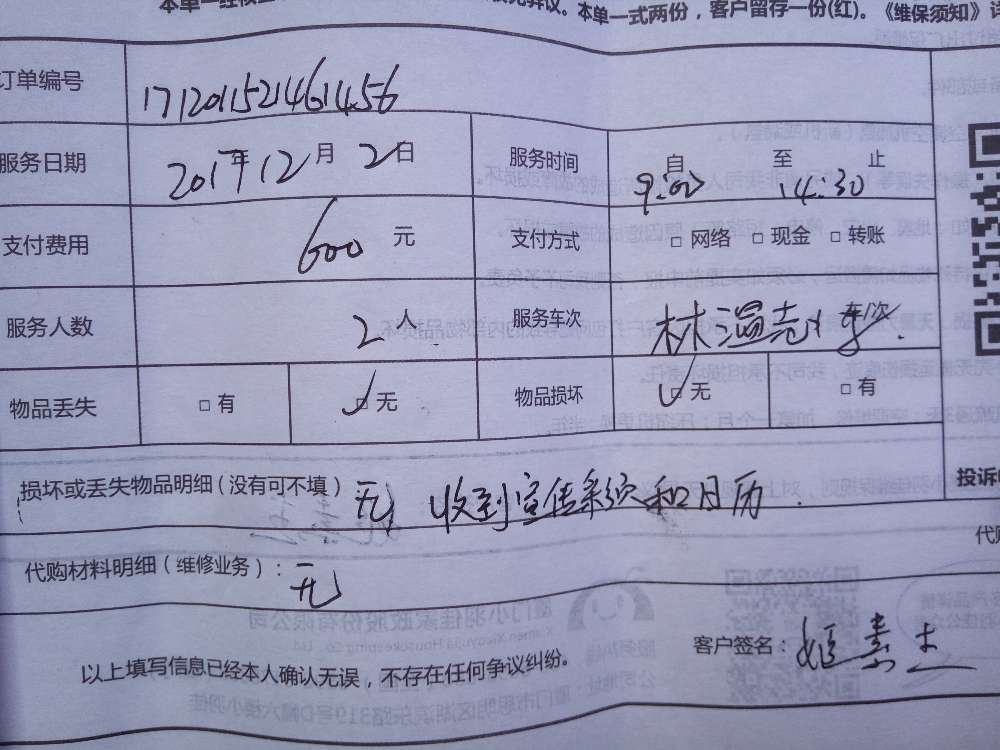 本单一式两份，客户留存一份(红)。《维保须知》
订单编号 171201152146145​6
服务日期 2017年12月2日 服务时间 自9:00至14:30止
支付费用 600元 支付方式 □ 网络 □ 现金 □ 转账
服务人数 2人 服务车次
物品丢失 □ 有 ✓□ 无 物品损坏 ✓□ 无 □ 有
损坏或丢失物品明细（没有可不填） 无 收到宣传 和日历
投诉
代购材料明细（维修业务）： 无
代购
以上填写信息已经本人确认无误，不存在任何争议纠纷。
客户签名：